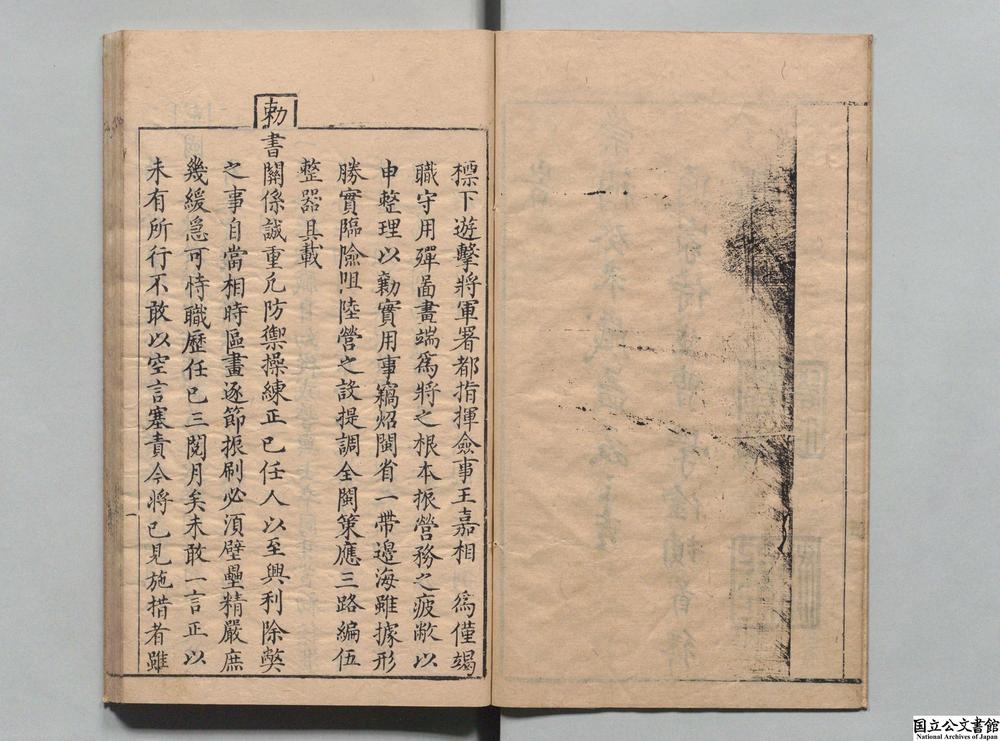 標下遊擊將軍署都指揮僉事王嘉相　為僅竭
職守用殫啚畫端為將之根本振營務之疲敝以
申整理以勷實用事竊炤閩省一帶邊海雖據形
勝實臨險咀陸營之設提調全閩策應三路編伍
整器具載
勅書關係誠重凢防禦操練正已任人以至興利除獘
之事自當相時區畫逐節振刷必湏壁壘精嚴庶
幾緩急可恃職歷任已三閱月矣未敢一言正以
未有所行不敢以空言塞責今將已見施措者雖
一
国立公文書館
National Archives of Japan